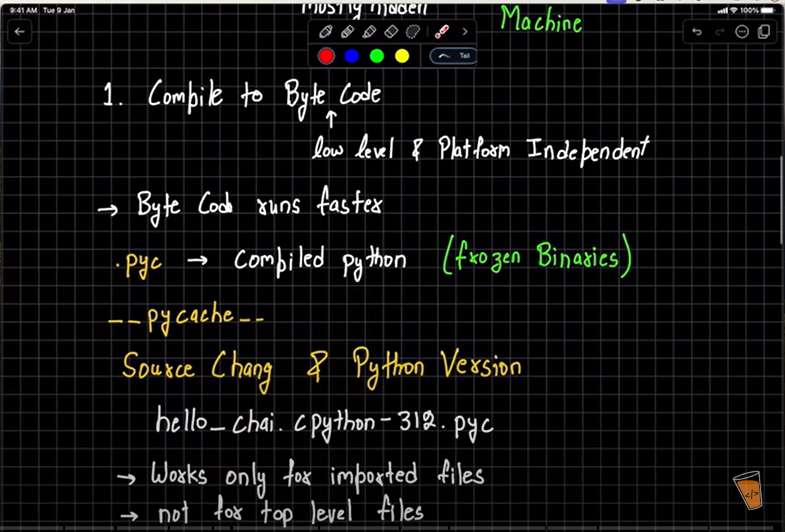 9:41 AM Tue 9 Jan
100%
mostly hidden
Machine
Tail
1. Compile to Byte Code
low level & Platform Independent
→ Byte Code runs faster
.pyc → compiled python (frozen Binaries)
__pycache__
Source Chang & Python Version
hello_chai.cpython-312.pyc
→ Works only for imported files
→ not for top level files
</>